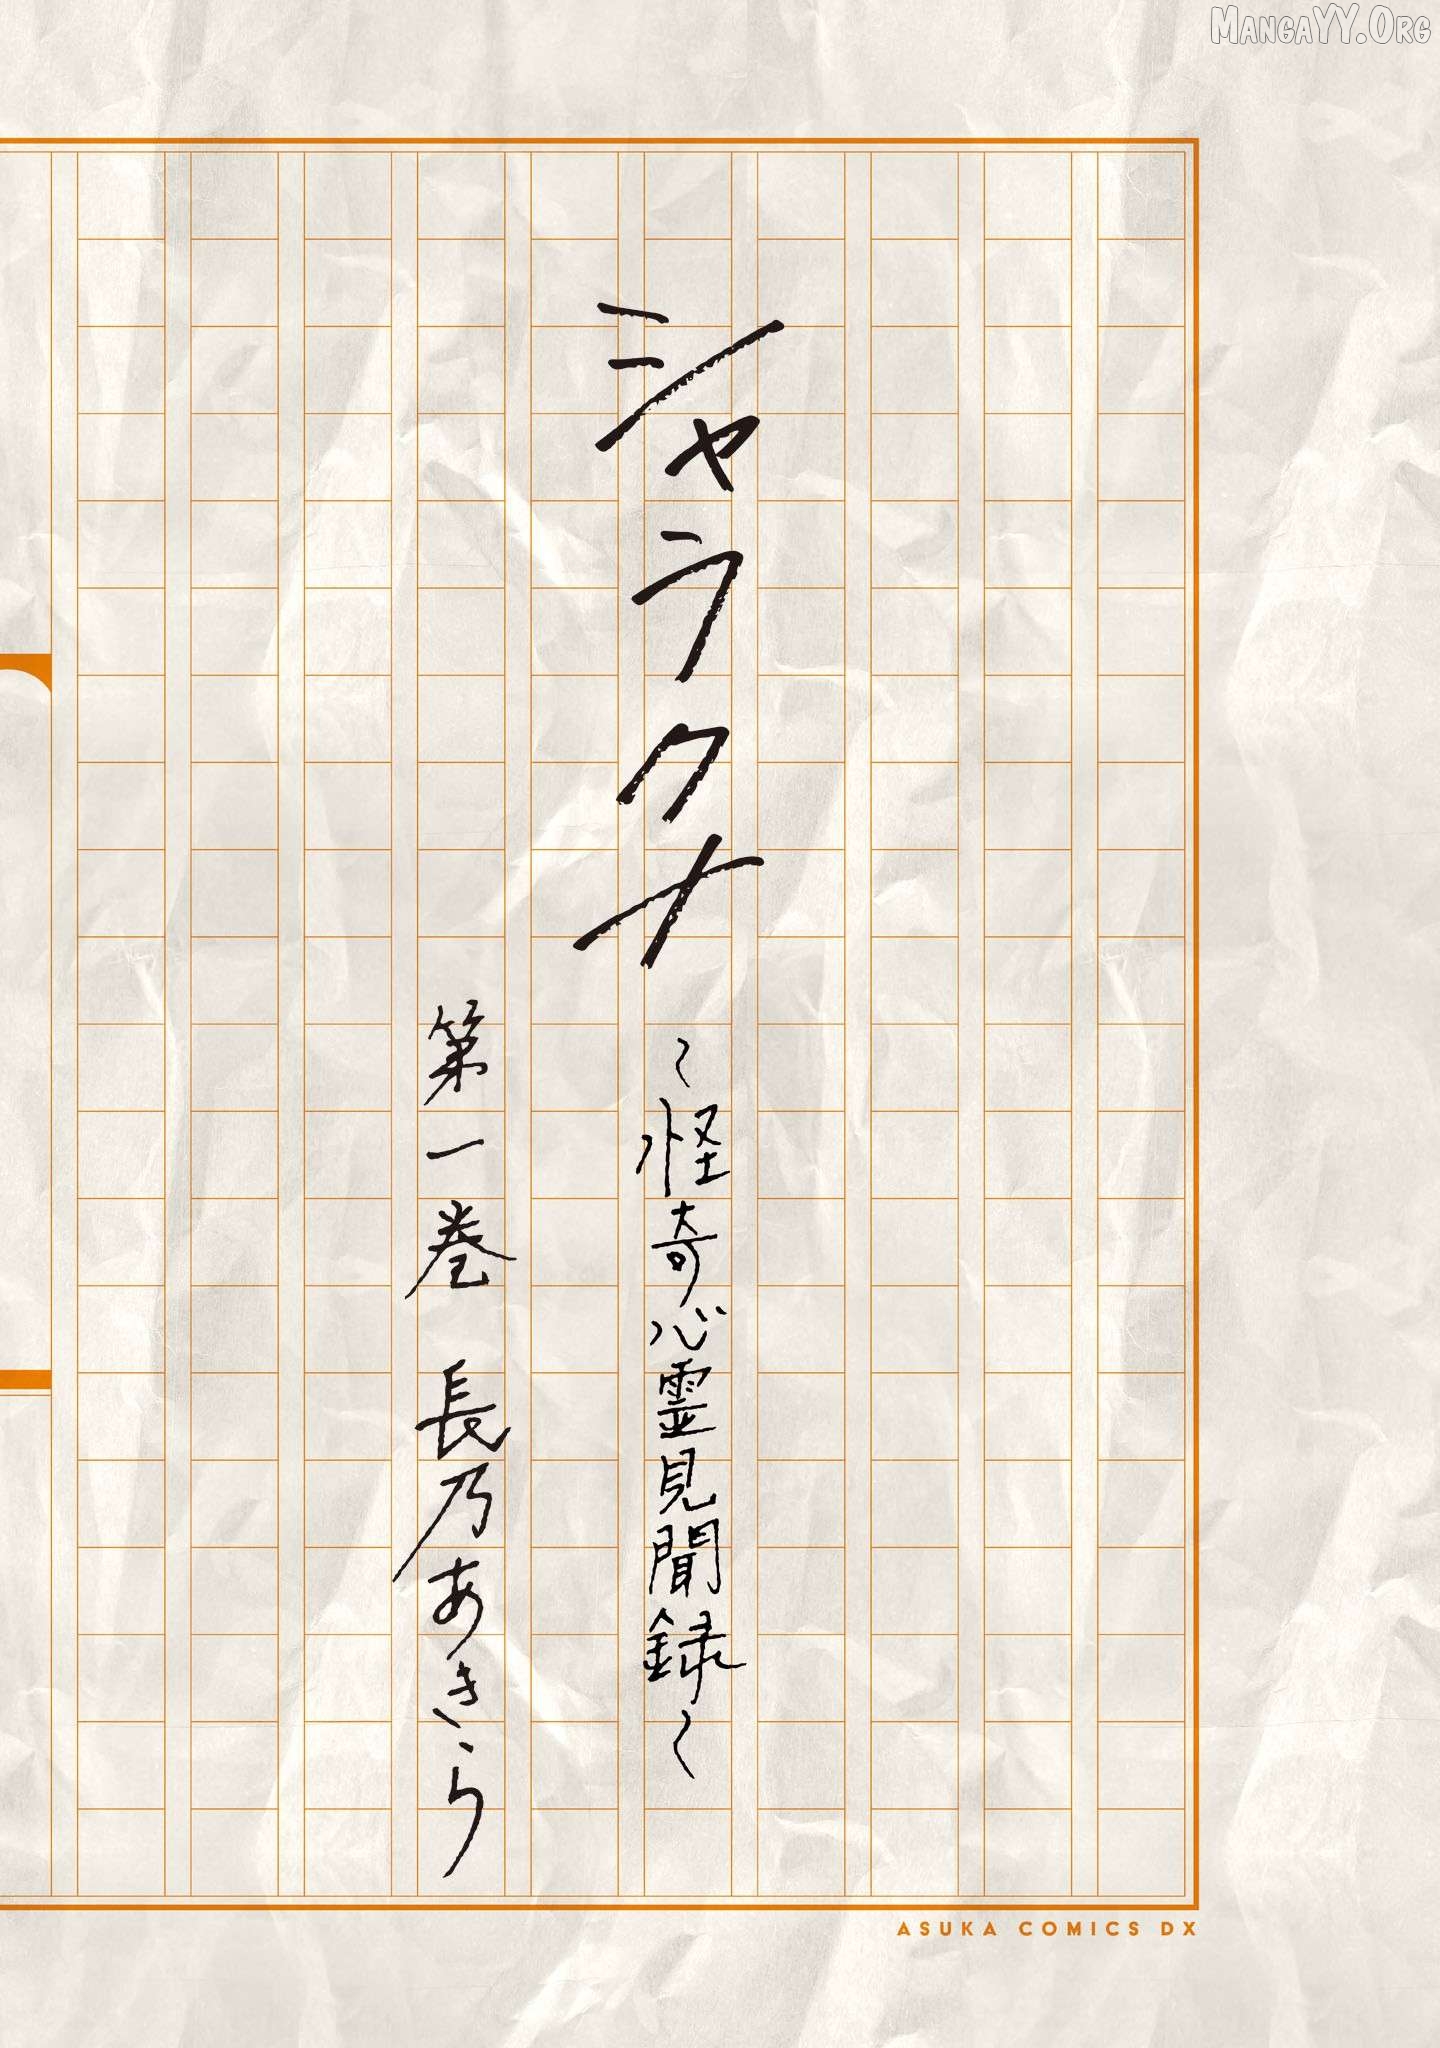 MangaYY.Org
シャラクナ
〜怪奇心霊見聞録〜
第一巻 長乃あきら
ASUKA COMICS DX